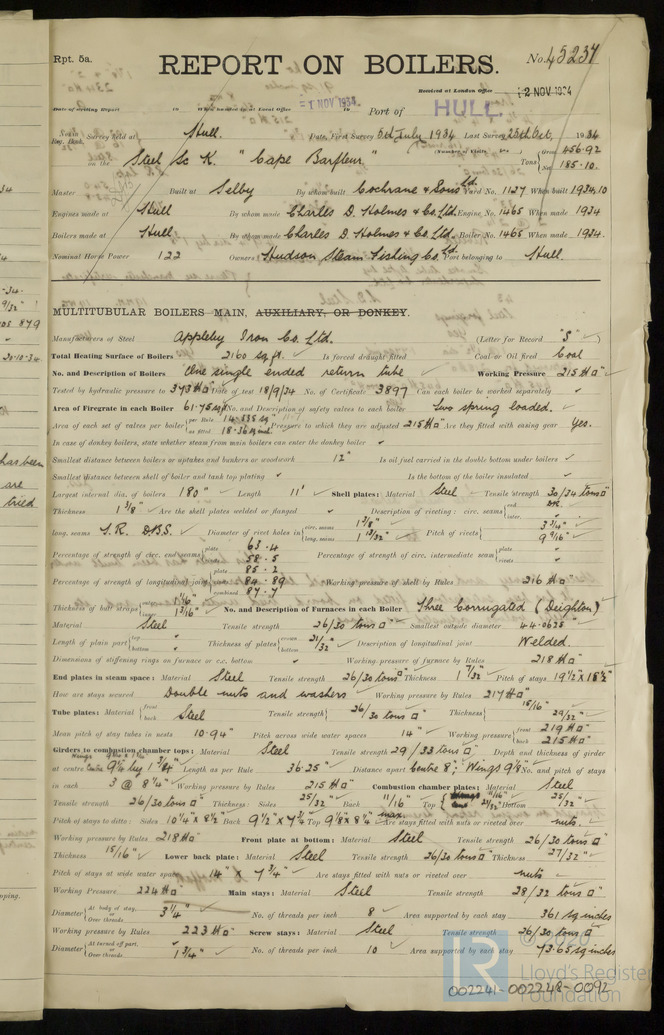 Rpt. 5a.
REPORT ON BOILERS.
No. 45237
Received at London Office 2 NOV 1934
Date of writing Report 19 When handed in at Local Office 1 NOV 1934 Port of HULL.
No. in Reg. Book. Survey held at Hull. Date, First Survey 3rd July 1934 Last Survey 25th Oct, 1934
on the Steel Sc K. "Cape Barfleur" (Number of Visits ) Tons Gross 456.92 Net 185.10.
Master Built at Selby By whom built Cochrane & Sons Ltd. Yard No. 1127 When built 1934.10
Engines made at Hull By whom made Charles D. Holmes & Co. Ltd. Engine No. 1465 When made 1934
Boilers made at Hull By whom made Charles D. Holmes & Co. Ltd. Boiler No. 1465 When made 1934.
Nominal Horse Power 122 Owners Hudson Steam Fishing Co. Ltd. Port belonging to Hull.
MULTITUBULAR BOILERS MAIN, AUXILIARY, OR DONKEY.
Manufacturers of Steel Appleby Iron Co. Ltd. (Letter for Record "S")
Total Heating Surface of Boilers 2160 sq. ft. Is forced draught fitted Coal or Oil fired Coal
No. and Description of Boilers One single ended return tube Working Pressure 215 #□"
Tested by hydraulic pressure to 373 #□" Date of test 18/9/34 No. of Certificate 3897 Can each boiler be worked separately ✓
Area of Firegrate in each Boiler 61.75 sq ft No. and Description of safety valves to each boiler Two spring loaded.
Area of each set of valves per boiler per Rule 14.135 sq" as fitted 18.36 sq ins. Pressure to which they are adjusted 215 #□" Are they fitted with easing gear Yes.
In case of donkey boilers, state whether steam from main boilers can enter the donkey boiler ✓
Smallest distance between boilers or uptakes and bunkers or woodwork 12" Is oil fuel carried in the double bottom under boilers ✓
Smallest distance between shell of boiler and tank top plating ✓ Is the bottom of the boiler insulated ✓
Largest internal dia. of boilers 180" Length 11' Shell plates: Material Steel Tensile strength 30/34 tons □"
Thickness 1 3/8" Are the shell plates welded or flanged ✓ Description of riveting: circ. seams end DR. inter.
long. seams T.R. D.B.S. Diameter of rivet holes in circ. seams 1 3/8" long. seams 1 13/32" Pitch of rivets 3 3/4" 9 9/16"
Percentage of strength of circ. end seams plate 63.4 rivets 58.5 Percentage of strength of circ. intermediate seam plate rivets
Percentage of strength of longitudinal joint plate 85.2 rivets 84.89 combined 87.7 Working pressure of shell by Rules 216 #□"
Thickness of butt straps outer 1 1/16" inner 1 3/16" No. and Description of Furnaces in each Boiler Three Corrugated (Deighton)
Material Steel Tensile strength 26/30 tons □" Smallest outside diameter 44.0625"
Length of plain part top bottom Thickness of plates crown bottom 21/32" Description of longitudinal joint Welded.
Dimensions of stiffening rings on furnace or c.c. bottom Working pressure of furnace by Rules 218 #□"
End plates in steam space: Material Steel Tensile strength 26/30 tons □" Thickness 1 7/32" Pitch of stays 19 1/2" x 18 1/2"
How are stays secured Double nuts and washers Working pressure by Rules 217 #□"
Tube plates: Material front back Steel Tensile strength 26/30 tons □" Thickness 15/16" 29/32"
Mean pitch of stay tubes in nests 10.94" Pitch across wide water spaces 14" Working pressure front 219 #□" back 215 #□"
Girders to combustion chamber tops: Material Steel Tensile strength 29/33 tons □" Depth and thickness of girder
at centre Length as per Rule 36.25" Distance apart Centre 8"; Wings 9 1/8" No. and pitch of stays
in each 3 @ 8 1/4" Working pressure by Rules 215 #□" Combustion chamber plates: Material Steel
Tensile strength 26/30 tons □" Thickness: Sides 25/32" Back 11/16" Top Bottom 25/32"
Pitch of stays to ditto: Sides 10 1/4" x 8 1/2" Back 9 1/2" x 7 3/4" Top 9 1/8" x 8 1/4" max. Are stays fitted with nuts or riveted over nuts
Working pressure by Rules 218 #□" Front plate at bottom: Material Steel Tensile strength 26/30 tons □"
Thickness 15/16" Lower back plate: Material Steel Tensile strength 26/30 tons □" Thickness 27/32"
Pitch of stays at wide water space 14" x 7 3/4" Are stays fitted with nuts or riveted over nuts
Working Pressure 224 #□" Main stays: Material Steel Tensile strength 28/32 tons □"
Diameter At body of stay, or Over threads 3 1/4" No. of threads per inch 8 Area supported by each stay 361 sq inches
Working pressure by Rules 223 #□" Screw stays: Material Steel Tensile strength 26/30 tons □"
Diameter At turned off part, or Over threads 1 3/4" No. of threads per inch 10 Area supported by each stay 73.65 sq inches
© 2020
LR
Lloyd's Register
Foundation
002241-002248-0092